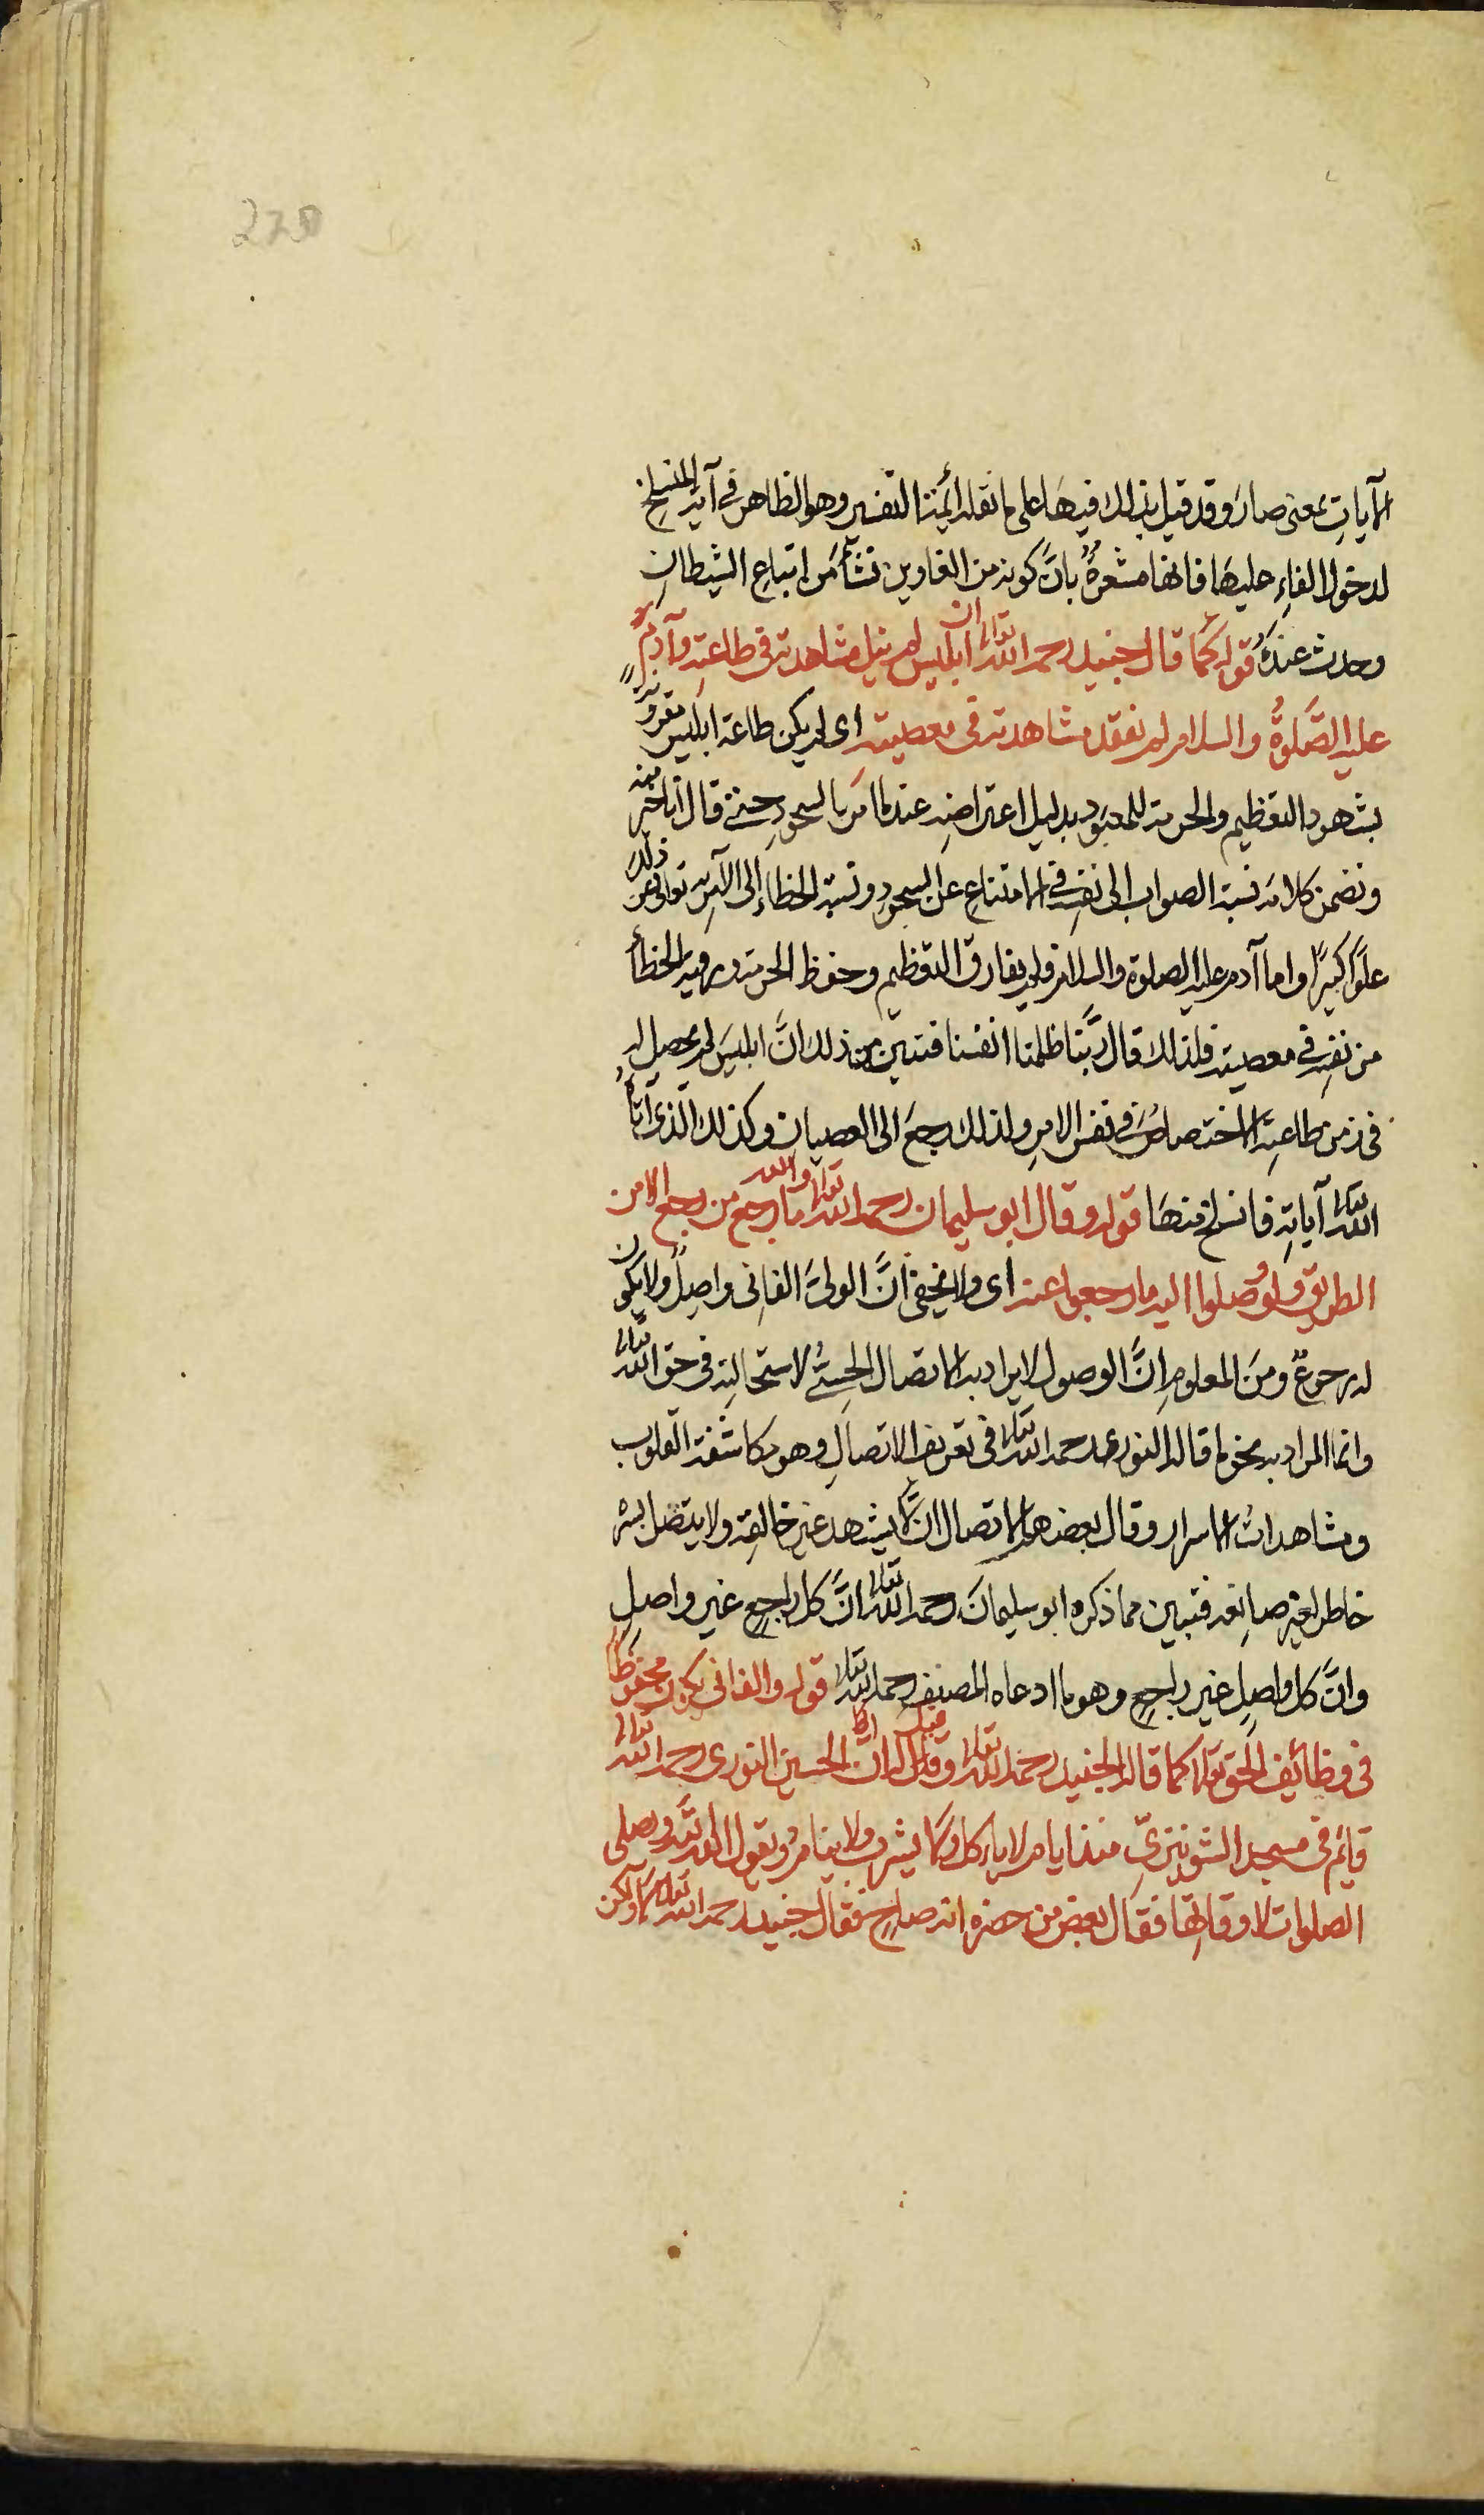 220
الآياتِ بمعنى صارَ وقد قيل بذلك فيها على ما نقله أئمتنا التفسير وهو الظاهر في آية المنسلخ
لدخول الفاءِ عليها فانها مشعرةٌ بانَّ كونه من الغاوين نشأ من اتباع الشيطانِ
وحدث عنه قوله كما قال جنيد رحمه الله تعالى ان ابليس لم ينل مشاهدته في طاعته وآدم
عليه الصَّلوةُ والسلام لم يفقد مشاهدته في معصيته اى لم يكن طاعة ابليس مقرونة
بشهود التعظيم والحرمة للمعبود بدليل اعتراضه عند ما امر بالسجودِ حتى قال انا خير منه
وتضمن كلامه نسبة الصواب الى نفسه في الامتناع عن السجودِ ونسبة الخطاء الى الآمر به تعالى عن ذلك
علوًّا كبيرًا واما آدم عليه الصلوة والسلام فلم يفارق التعظيم وحفظ الحرمة ورؤية الخطأ
من نفسه في معصيته فلذلك قال ربَّنا ظلمنا انفسنا فتبين من ذلك انَّ ابليسَ لم يحصل له
في زمن طاعته الاختصاصُ في نفس الامرِ ولذلك رجعَ الى العصيانِ وكذلك الَّذى آتاهُ
الله تعالى آياتِه فانسلخ منها قوله وقال ابو سليمان رحمه الله تعالى والله ما رجع من رجع الا من
الطريق ولو وصلوا اليه ما رجعوا عنه اى ولا يخفى انَّ الولىَّ الفانى واصلٌ ولا يكون
له رجوعٌ ومن المعلوم انَّ الوصول لا يراد به الاتصال الحسِّىُّ لاستحالته فى حق الله تعالى
وانما المراد به نحو ما قاله النورى رحمه الله تعالى فى تعريف الاتصالِ وهو مكاشفة القلوب
ومشاهدات الاسرار وقال بعضهم الاتصال ان لا يشهد غير خالقه ولا يتصل بسره
خاطر لغير صانعه فتبين مما ذكره ابو سليمانَ رحمه الله تعالى انَّ كل راجعٍ غير واصلٍ
وانَّ كل واصلٍ غير راجعٍ وهو ما ادعاه المصنف رحمه الله تعالى قوله والفانى يكون محفوظا
فى وظائف الحق تعالى كما قاله الجنيد رحمه الله تعالى وقد قيل له ان ابا الحسين النورى رحمه الله تعالى
قائم فى مسجد الشونيزىِّ منذ ايام لا ياءكل ولا يشرب ولا ينام ويقول الله الله ويصلى
الصلوات لاوقاتها فقال بعض من حضره انه صاحٍ فقال جنيد رحمه الله تعالى لا ولكن